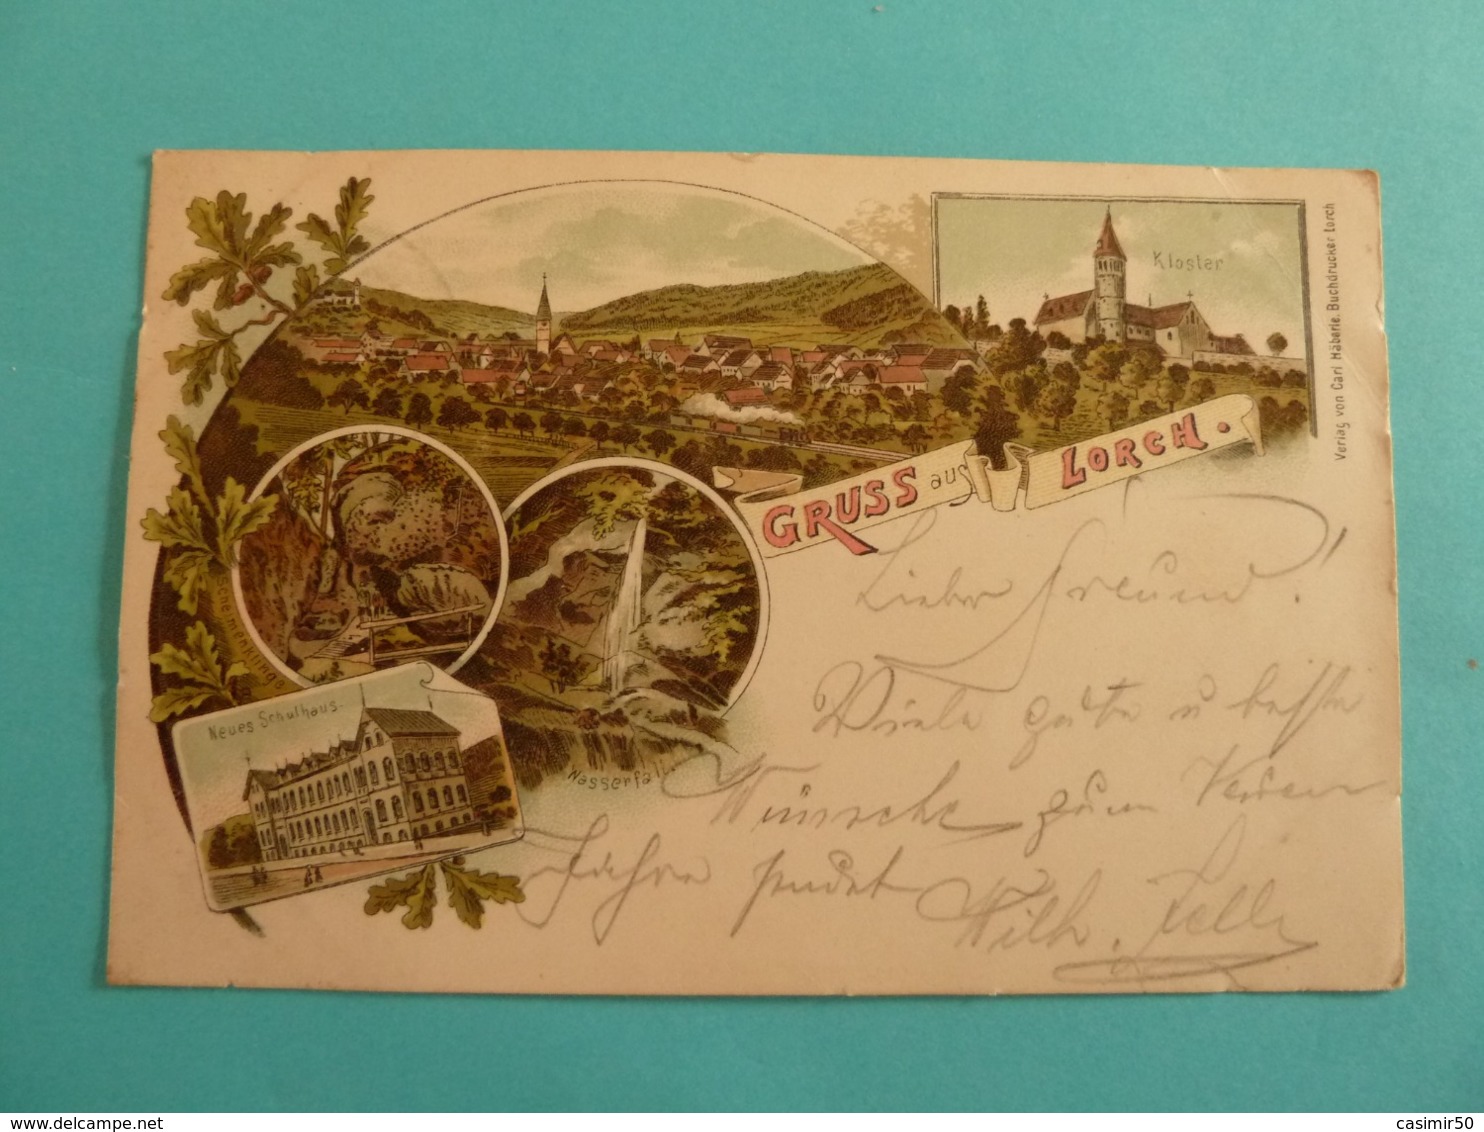 Kloster
Verlag von Carl Häberle. Buchdrucker Lorch
GRUSS aus LORCH.
Schelmenklinge
Neues Schulhaus.
Wasserfall
Lieber Freund!
Viele gute u beste
Wünsche zum Neuen
Jahre sendet
Wilh.
casimir50